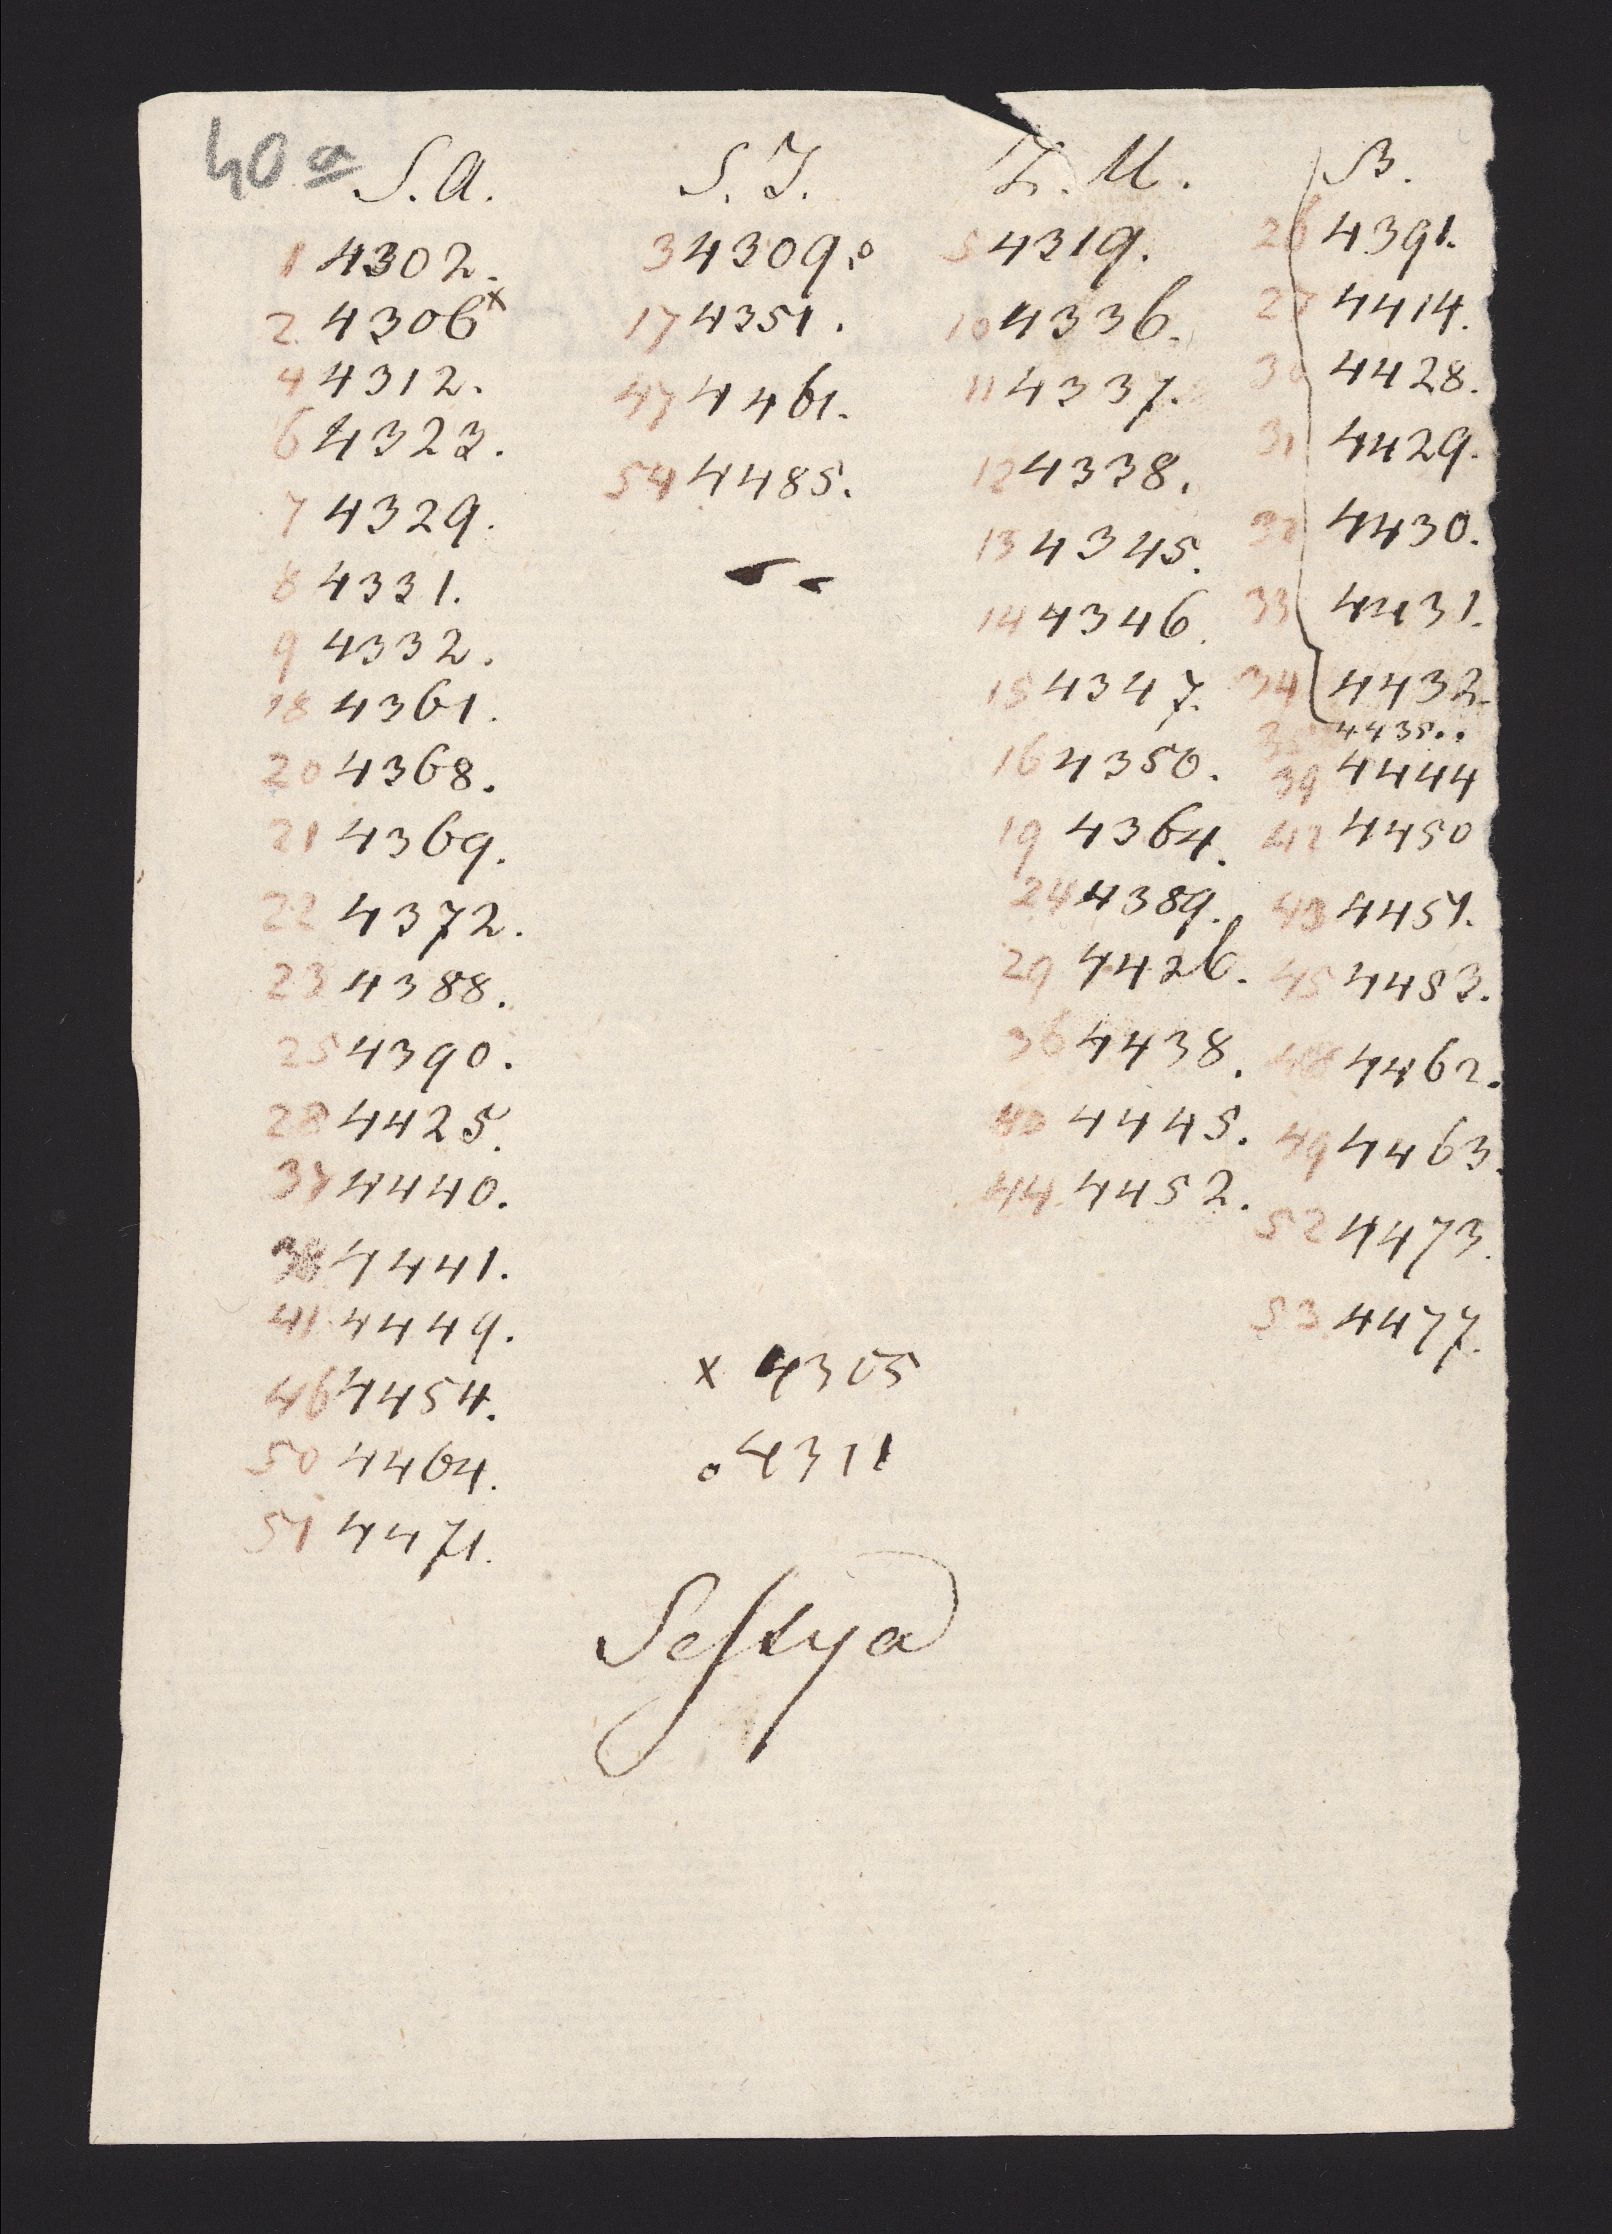 40 a
S. A.
1 4302.
2 4306 x
4 4312.
6 4323.
7 4329.
8 4331.
9 4332.
18 4361.
20 4368.
21 4369.
22 4372.
23 4388.
25 4390.
28 4425.
37 4440.
38 4441.
41 4449.
46 4454.
50 4464.
51 4471.
S. J.
3 4309. o
17 4351.
47 4461.
54 4485.
x 4305
o 4311
Z. M.
5 4319.
10 4336.
11 4337.
12 4338.
13 4345.
14 4346.
15 4347.
16 4350.
19 4364.
24 4389.
29 4426.
36 4438.
40 4445.
44 4452.
B.
26 4391.
27 4414.
30 4428.
31 4429.
32 4430.
33 4431.
34 4432.
35 4435..
39 4444
42 4450
43 4451.
45 4453.
48 4462.
49 4463.
52 4473.
53 4477.